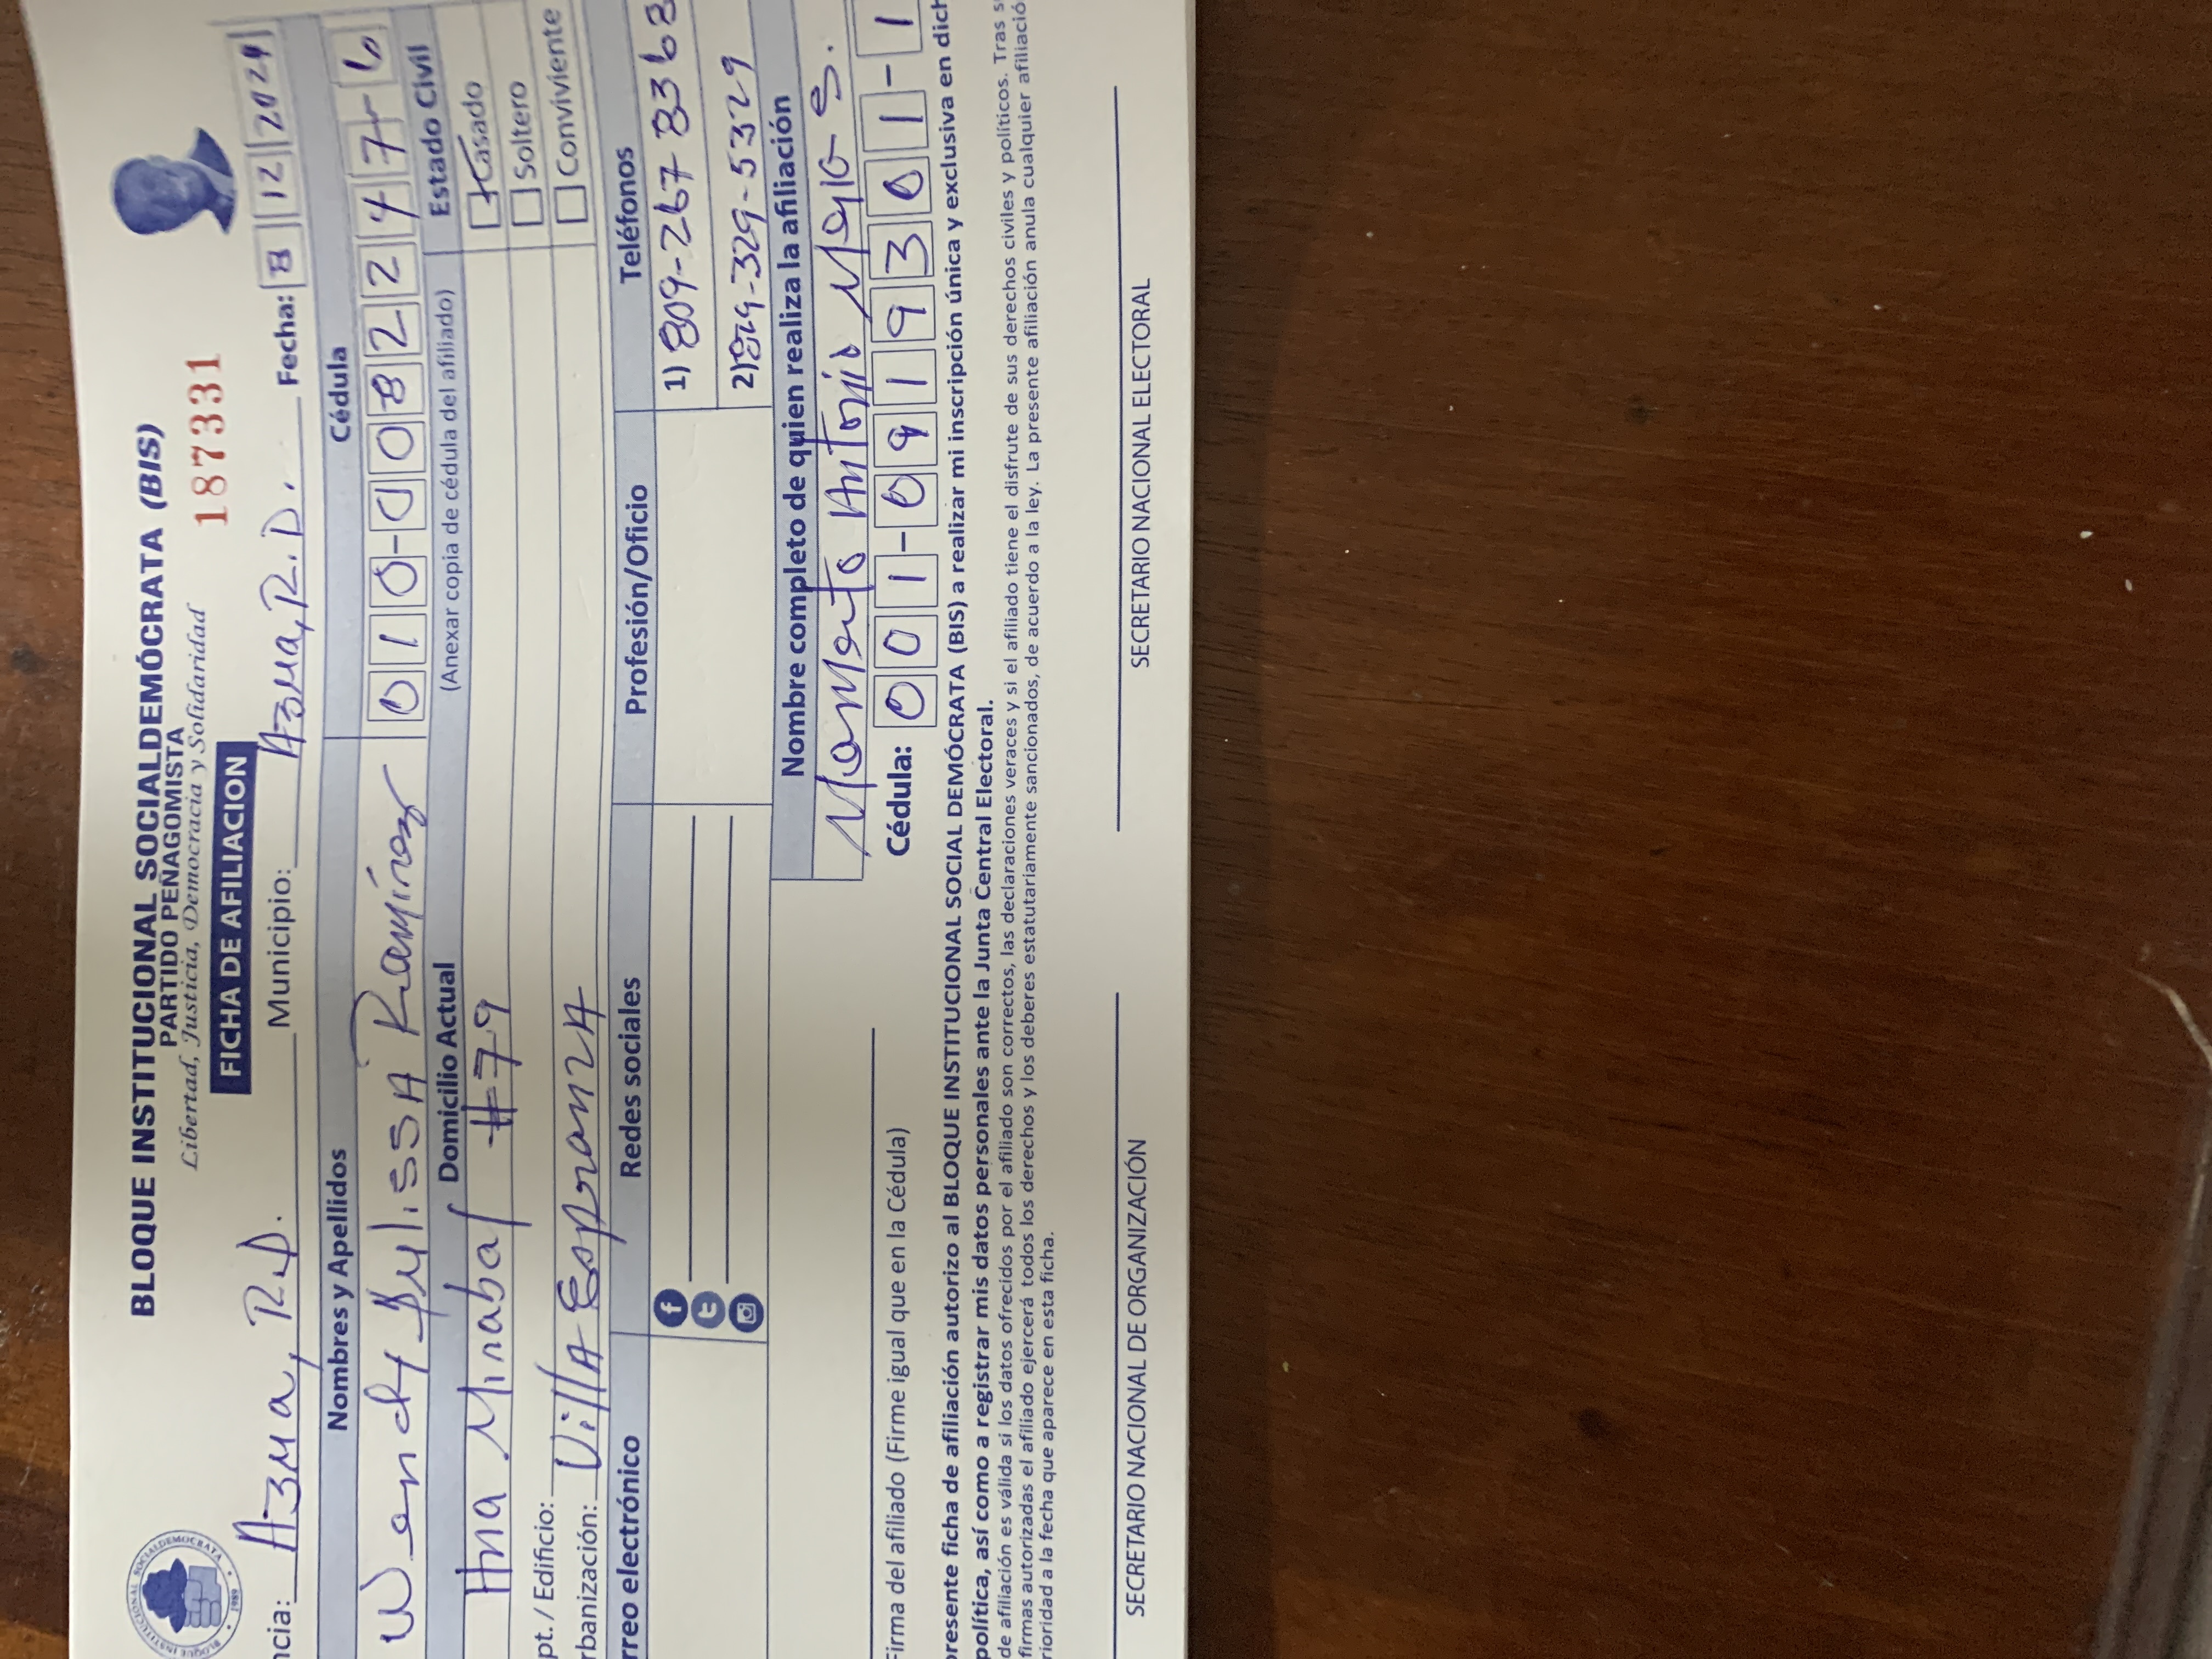 BLOQUE INSTITUCIONAL SOCIALDEMÓCRATA (BIS)
PARTIDO PEÑAGOMISTA
Libertad, Justicia, Democracia y Solidaridad
187331
FICHA DE AFILIACION
ncia: Azua, R.D. Municipio: Azua, R.D. Fecha: 8 12 2024
Nombres y Apellidos Cédula
Wendy Julissa Ramírez 010-0082247-6
Domicilio Actual (Anexar copia de cédula del afiliado) Estado Civil
Ana Minabal #79
Casado
Soltero
pt. / Edificio:
Conviviente
rbanización: Villa Esperanza
rreo electrónico Redes sociales Profesión/Oficio Teléfonos
1) 809-267 8368
2) 829-329-5329
Nombre completo de quien realiza la afiliación
Antonio
Cédula: 001-0919301-1
Firma del afiliado (Firme igual que en la Cédula)
presente ficha de afiliación autorizo al BLOQUE INSTITUCIONAL SOCIAL DEMÓCRATA (BIS) a realizar mi inscripción única y exclusiva en dich
política, así como a registrar mis datos personales ante la Junta Central Electoral.
de afiliación es válida si los datos ofrecidos por el afiliado son correctos, las declaraciones veraces y si el afiliado tiene el disfrute de sus derechos civiles y políticos. Tras s
firmas autorizadas el afiliado ejercerá todos los derechos y los deberes estatutariamente sancionados, de acuerdo a la ley. La presente afiliación anula cualquier afiliació
rioridad a la fecha que aparece en esta ficha.
SECRETARIO NACIONAL DE ORGANIZACIÓN SECRETARIO NACIONAL ELECTORAL